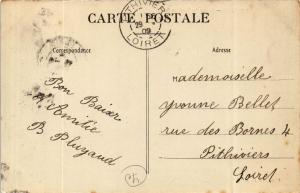 CARTE POSTALE
PITHIVIERS
29
09
LOIRET
Correspondance
Adresse
Bon Baiser
d'Amitié
B Pluyaud
Mademoiselle
Yvonne Bellet
rue des Bornes 4
Pithiviers
Loiret